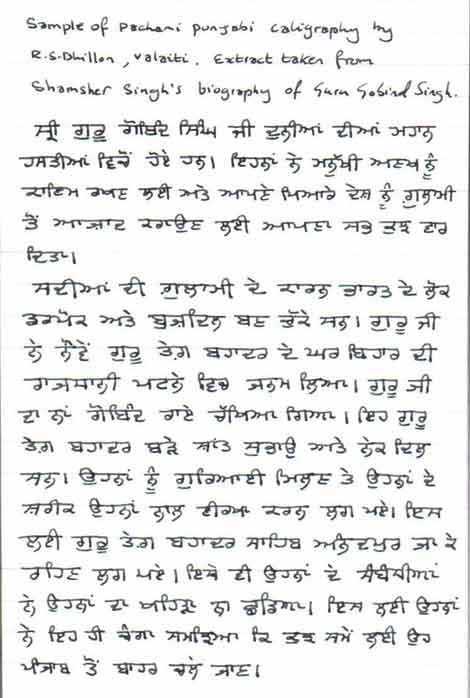 Sample of Pachani punjabi caligraphy by
R.S.Dhillon, Valaiti. Extract taken from
Shamsher Singh's biography of Guru Gobind Singh.
ਸ੍ਰੀ ਗੁਰੂ ਗੋਬਿੰਦ ਸਿੰਘ ਜੀ ਦੁਨੀਆਂ ਦੀਆਂ ਮਹਾਨ
ਹਸਤੀਆਂ ਵਿਚੋਂ ਹੋਏ ਹਨ। ਇਹਨਾਂ ਨੇ ਮਨੁੱਖੀ ਅਣਖ ਨੂੰ
ਕਾਇਮ ਰਖਣ ਲਈ ਅਤੇ ਆਪਣੇ ਪਿਆਰੇ ਦੇਸ਼ ਨੂੰ ਗੁਲਾਮੀ
ਤੋਂ ਆਜ਼ਾਦ ਕਰਾਉਣ ਲਈ ਆਪਣਾ ਸਭ ਕੁਝ ਵਾਰ
ਦਿਤਾ।
ਸਦੀਆਂ ਦੀ ਗੁਲਾਮੀ ਦੇ ਕਾਰਨ ਭਾਰਤ ਦੇ ਲੋਕ
ਡਰਪੋਕ ਅਤੇ ਬੁਜ਼ਦਿਲ ਬਣ ਚੁੱਕੇ ਸਨ। ਗੁਰੂ ਜੀ
ਨੇ ਨੌਵੇਂ ਗੁਰੂ ਤੇਗ਼ ਬਹਾਦਰ ਦੇ ਘਰ ਬਿਹਾਰ ਦੀ
ਰਾਜਧਾਨੀ ਪਟਨੇ ਵਿਚ ਜਨਮ ਲਿਆ। ਗੁਰੂ ਜੀ
ਦਾ ਨਾਂ ਗੋਬਿੰਦ ਰਾਏ ਰੱਖਿਆ ਗਿਆ। ਇਹ ਗੁਰੂ
ਤੇਗ਼ ਬਹਾਦਰ ਬੜੇ ਸ਼ਾਂਤ ਸੁਭਾਉ ਅਤੇ ਨੇਕ ਦਿਲ
ਸਨ। ਉਹਨਾਂ ਨੂੰ ਗੁਰਿਆਈ ਮਿਲਣ ਤੇ ਉਹਨਾਂ ਦੇ
ਸ਼ਰੀਕ ਉਹਨਾਂ ਨਾਲ ਈਰਖਾ ਕਰਨ ਲਗ ਪਏ। ਇਸ
ਲਈ ਗੁਰੂ ਤੇਗ਼ ਬਹਾਦਰ ਸਾਹਿਬ ਅਨੰਦਪੁਰ ਜਾ ਕੇ
ਰਹਿਣ ਲਗ ਪਏ। ਇਥੇ ਵੀ ਉਹਨਾਂ ਦੇ ਸੰਬੰਧੀਆਂ
ਨੇ ਉਹਨਾਂ ਦਾ ਖਹਿੜਾ ਨਾ ਛਡਿਆ। ਇਸ ਲਈ ਉਹਨਾਂ
ਨੇ ਇਹ ਹੀ ਚੰਗਾ ਸਮਝਿਆ ਕਿ ਕੁਝ ਸਮੇਂ ਲਈ ਉਹ
ਪੰਜਾਬ ਤੋਂ ਬਾਹਰ ਚਲੇ ਜਾਣ।